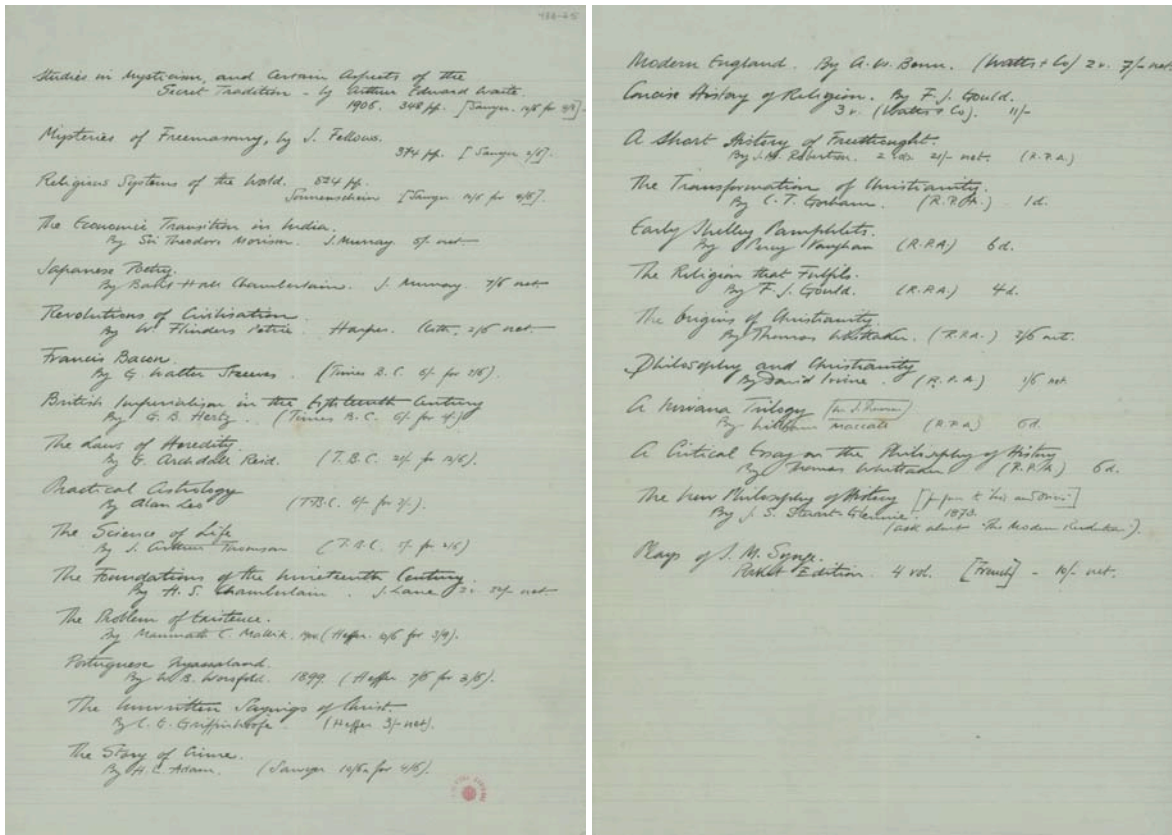 Studies in Mysticism, and Certain Aspects of the
Secret Tradition - by Arthur Edward Waite.
1906. 348 pp. [Sawyer. 10/6 for
Mysteries of Freemasonry, by J. Fellows.
374 pp. [Sawyer 2/6].
Religious Systems of the World. 824 pp.
Sonnenschein [Sawyer 10/6 for 4/6].
The Economic Transition in India.
By Sir Theodore Morison. J. Murray. 5/- net
Japanese Poetry.
By Basil Hall Chamberlain. J. Murray. 7/6 net
Revolutions of Civilisation.
By W. Flinders Petrie. Harper. 2/6 net.
Francis Bacon.
By G. Walter Steeves. (Times B.C. 6/- for 2/6).
British Imperialism in the Eighteenth Century
By G. B. Hertz. (Times B.C. 6/- for
The Laws of Heredity.
By G. Archdall Reid. (T.B.C. 21/- for 12/6).
Practical Astrology
By Alan Leo (T.B.C. 5/- for 2/-).
The Science of Life
By J. Arthur Thomson (T.B.C. for 2/6)
The Foundations of the Nineteenth Century.
By H. S. Chamberlain. J. Lane 2v. net
The Problem of Existence.
By Manmath C. Mallik. (Heffer. 10/6 for 3/9).
Portuguese Nyassaland.
By W. B. Worsfold. 1899. (Heffer 7/6 for 3/6).
The Unwritten Sayings of Christ.
By C. G. Griffinhoofe. (Heffer 3/- net).
The Story of Crime.
By H. L. Adam. (Sawyer 12/6 for 4/6).
Modern England. By A. W. Benn. (Watts & Co) 2 v. 7/- net.
Concise History of Religion. By F. J. Gould.
3 v. (Watts & Co). 11/-
A Short History of Freethought.
By J. M. Robertson. 2 vols. 21/- net. (R.P.A.)
The Transformation of Christianity.
By C. T. Gorham. (R.P.A.) 1d.
Early Shelley Pamphlets.
By Percy Vaughan (R.P.A.) 6d.
The Religion that Fulfils.
By F. J. Gould. (R.P.A.) 4d.
The Origins of Christianity.
By Thomas Whittaker. (R.P.A.) 3/6 net.
Philosophy and Christianity
By David Irvine. (R.P.A.) 1/6 net.
A Nirvana Trilogy
By William Maccall (R.P.A) 6d.
A Critical Essay on the Philosophy of History
By Thomas Whittaker (R.P.A.) 6d.
The New Philosophy of History
By J. S. Stuart-Glennie. 1873.
(ask about "The Modern Revolution").
Plays of J. M. Synge.
Pocket Edition. 4 vol. [French] - 10/- net.